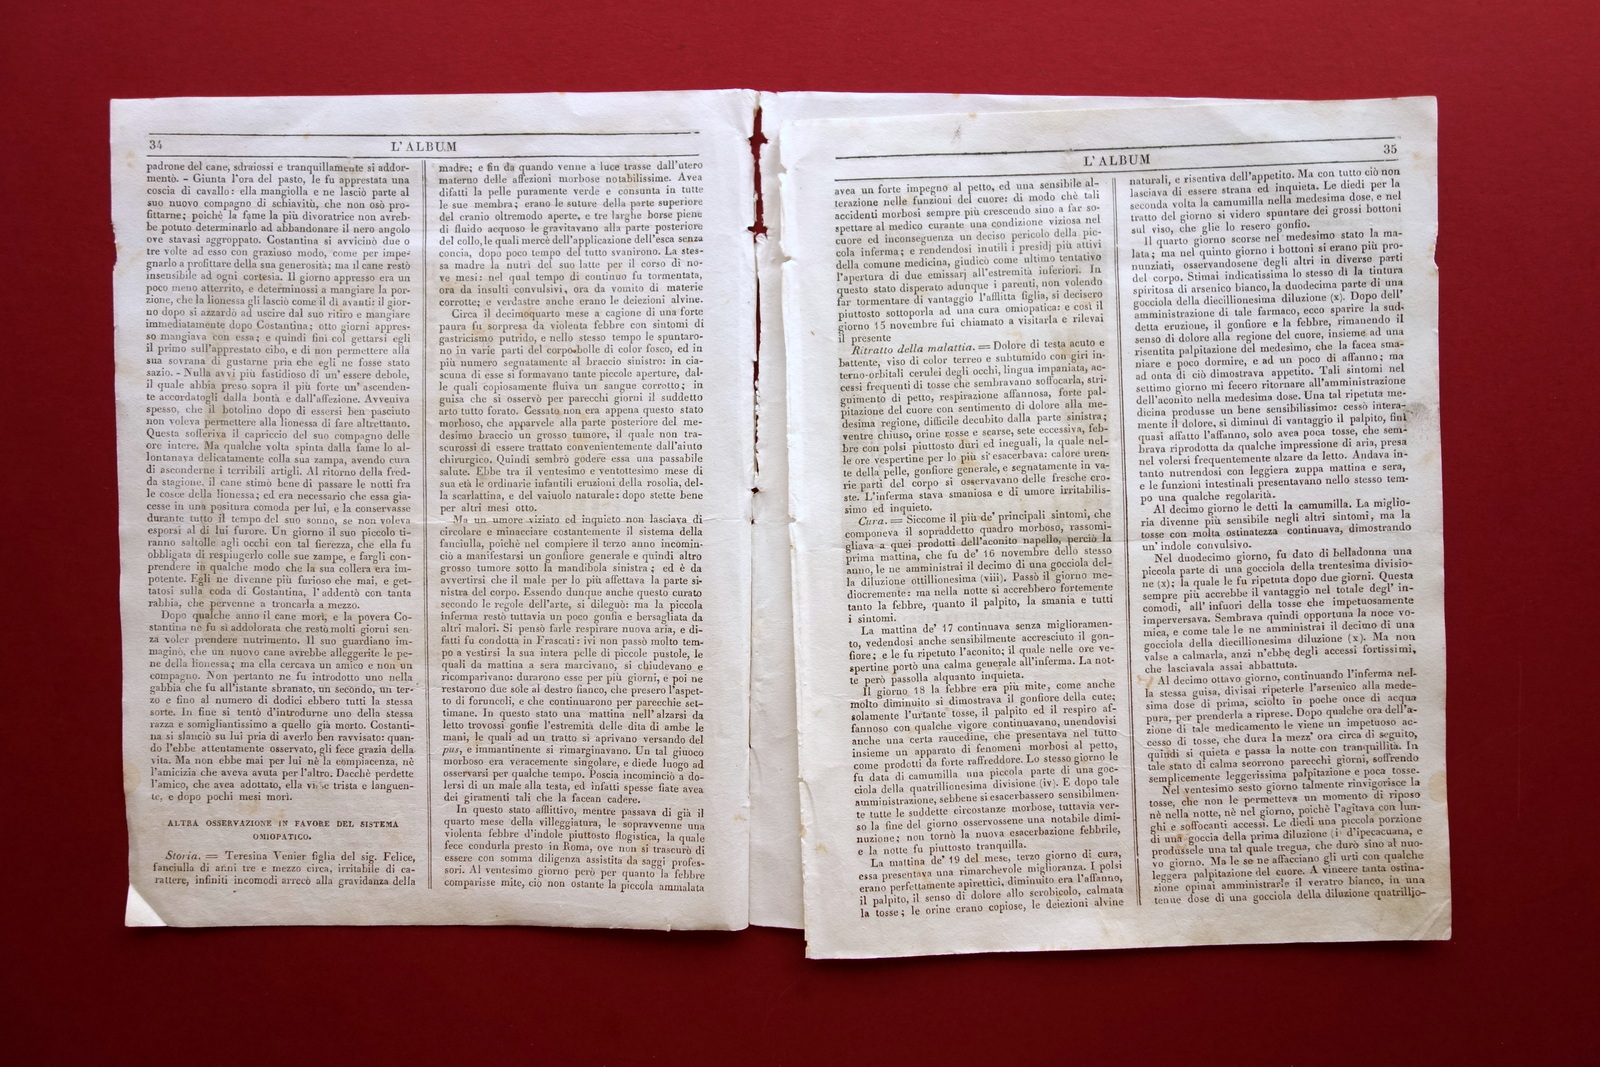 34
L'ALBUM
padrone del cane, sdraiossi e tranquillamente si addor-
mentò. - Giunta l'ora del pasto, le fu apprestata una
coscia di cavallo: ella mangiolla e ne lasciò parte al
suo nuovo compagno di schiavitù, che non osò pro-
fittarne; poichè la fame la più divoratrice non avreb-
be potuto determinarlo ad abbandonare il nero angolo
ove stavasi aggroppato. Costantina si avvicinò due o
tre volte ad esso con grazioso modo, come per impe-
gnarlo a profittare della sua generosità; ma il cane restò
insensibile ad ogni cortesia. Il giorno appresso era un
poco meno atterrito, e determinossi a mangiare la por-
zione, che la lionessa gli lasciò come il dì avanti: il gior-
no dopo si azzardò ad uscire dal suo ritiro e mangiare
immediatamente dopo Costantina; otto giorni appres-
so mangiava con essa; e quindi finì col gettarsi egli
il primo sull'apprestato cibo, e di non permettere alla
sua sovrana di gustarne pria che egli ne fosse stato
sazio. - Nulla avvi più fastidioso di un' essere debole,
il quale abbia preso sopra il più forte un' ascenden-
te accordatogli dalla bontà e dall'affezione. Avveniva
spesso, che il botolino dopo di essersi ben pasciuto
non voleva permettere alla lionessa di fare altrettanto.
Questa sofferiva il capriccio del suo compagno delle
ore intere. Ma qualche volta spinta dalla fame lo al-
lontanava delicatamente colla sua zampa, avendo cura
di asconderne i terribili artigli. Al ritorno della fred-
da stagione, il cane stimò bene di passare le notti fra
le cosce della lionessa; ed era necessario che essa gia-
cesse in una positura comoda per lui, e la conservasse
durante tutto il tempo del suo sonno, se non voleva
esporsi al di lui furore. Un giorno il suo piccolo ti-
ranno saltolle agli occhi con tal fierezza, che ella fu
obbligata di respingerlo colle sue zampe, e fargli com-
prendere in qualche modo che la sua collera era im-
potente. Egli ne divenne più furioso che mai, e get-
tatosi sulla coda di Costantina, l'addentò con tanta
rabbia, che pervenne a troncarla a mezzo.
Dopo qualche anno il cane morì, e la povera Co-
stantina ne fu sì addolorata che restò molti giorni sen-
za voler prendere nutrimento. Il suo guardiano im-
maginò, che un nuovo cane avrebbe alleggerite le pe-
ne della lionessa; ma ella cercava un amico e non un
compagno. Non pertanto ne fu introdotto uno nella
gabbia che fu all'istante sbranato, un secondo, un ter-
zo e fino al numero di dodici ebbero tutti la stessa
sorte. In fine si tentò d'introdurne uno della stessa
razza e somigliantissimo a quello già morto. Costanti-
na si slanciò su lui pria di averlo ben ravvisato: quan-
do l'ebbe attentamente osservato, gli fece grazia della
vita. Ma non ebbe mai per lui nè la compiacenza, nè
l'amicizia che aveva avuta per l'altro. Dacchè perdette
l'amico, che avea adottato, ella visse trista e languen-
te, e dopo pochi mesi morì.
ALTRA OSSERVAZIONE IN FAVORE DEL SISTEMA
OMIOPATICO.
Storia. = Teresina Venier figlia del sig. Felice,
fanciulla di anni tre e mezzo circa, irritabile di ca-
rattere, infiniti incomodi arrecò alla gravidanza della
madre; e fin da quando venne a luce trasse dall'utero
materno delle affezioni morbose notabilissime. Avea
difatti la pelle puramente verde e consunta in tutte
le sue membra; erano le suture della parte superiore
del cranio oltremodo aperte, e tre larghe borse piene
di fluido acquoso le gravitavano alla parte posteriore
del collo, le quali mercè dell'applicazione dell'esca senza
concia, dopo poco tempo del tutto svanirono. La stes-
sa madre la nutrì del suo latte per il corso di no-
ve mesi: nel qual tempo di continuo fu tormentata,
ora da insulti convulsivi, ora da vomito di materie
corrotte; e verdastre anche erano le deiezioni alvine.
Circa il decimoquarto mese a cagione di una forte
paura fu sorpresa da violenta febbre con sintomi di
gastricismo putrido, e nello stesso tempo le spuntaro-
no in varie parti del corpo bolle di color fosco, ed in
più numero segnatamente al braccio sinistro: in cia-
scuna di esse si formavano tante piccole aperture, dal-
le quali copiosamente fluiva un sangue corrotto; in
guisa che si osservò per parecchi giorni il suddetto
arto tutto forato. Cessato non era appena questo stato
morboso, che apparvele alla parte posteriore del me-
desimo braccio un grosso tumore, il quale non tra-
scurossi di essere trattato convenientemente dall'aiuto
chirurgico. Quindi sembrò godere essa una passabile
salute. Ebbe tra il ventesimo e ventottesimo mese di
sua età le ordinarie infantili eruzioni della rosolia, del-
la scarlattina, e del vaiuolo naturale: dopo stette bene
per altri mesi otto.
Ma un umore viziato ed inquieto non lasciava di
circolare e minacciare costantemente il sistema della
fanciulla, poichè nel compiere il terzo anno incomin-
ciò a manifestarsi un gonfiore generale e quindi altro
grosso tumore sotto la mandibola sinistra; ed è da
avvertirsi che il male per lo più affettava la parte si-
nistra del corpo. Essendo dunque anche questo curato
secondo le regole dell'arte, si dileguò: ma la piccola
inferma restò tuttavia un poco gonfia e bersagliata da
altri malori. Si pensò farle respirare nuova aria, e di-
fatti fu condotta in Frascati: ivi non passò molto tem-
po a vestirsi la sua intera pelle di piccole pustole, le
quali da mattina a sera marcivano, si chiudevano e
ricomparivano: durarono esse per più giorni, e poi ne
restarono due sole al destro fianco, che presero l'aspet-
to di foruncoli, e che continuarono per parecchie set-
timane. In questo stato una mattina nell'alzarsi da
letto trovossi gonfie l'estremità delle dita di ambe le
mani, le quali ad un tratto si aprivano versando del
pus, e immantinente si rimarginavano. Un tal giuoco
morboso era veracemente singolare, e diede luogo ad
osservarsi per qualche tempo. Poscia incominciò a do-
lersi di un male alla testa, ed infatti spesse fiate avea
dei giramenti tali che la facean cadere.
In questo stato afflittivo, mentre passava di già il
quarto mese della villeggiatura, le sopravvenne una
violenta febbre d'indole piuttosto flogistica, la quale
fece condurla presto in Roma, ove non si trascurò di
essere con somma diligenza assistita da saggi profes-
sori. Al ventesimo giorno però per quanto la febbre
comparisse mite, ciò non ostante la piccola ammalata
L'ALBUM
35
avea un forte impegno al petto, ed una sensibile al-
terazione nelle funzioni del cuore: di modo chè tali
accidenti morbosi sempre più crescendo sino a far so-
spettare al medico curante una condizione viziosa nel
cuore ed inconseguenza un deciso pericolo della pic-
cola inferma; e rendendosi inutili i presidj più attivi
della comune medicina, giudicò come ultimo tentativo
l'apertura di due emissarj all'estremità inferiori. In
questo stato disperato adunque i parenti, non volendo
far tormentare di vantaggio l'afflitta figlia, si decisero
piuttosto sottoporla ad una cura omiopatica: e così il
giorno 15 novembre fui chiamato a visitarla e rilevai
il presente
Ritratto della malattia. = Dolore di testa acuto e
battente, viso di color terreo e subtumido con giri in-
terno-orbitali cerulei degli occhi, lingua impaniata, ac-
cessi frequenti di tosse che sembravano soffocarla, stri-
guimento di petto, respirazione affannosa, forte pal-
pitazione del cuore con sentimento di dolore alla me-
desima regione, difficile decubito dalla parte sinistra;
ventre chiuso, orine rosse e scarse, sete eccessiva, feb-
bre con polsi piuttosto duri ed ineguali, la quale nel-
le ore vespertine per lo più si esacerbava: calore uren-
te della pelle, gonfiore generale, e segnatamente in va-
rie parti del corpo si osservavano delle fresche cro-
ste. L'inferma stava smaniosa e di umore irritabilis-
simo ed inquieto.
Cura. = Siccome il più de' principali sintomi, che
componeva il sopraddetto quadro morboso, rassomi-
gliava a quei prodotti dell'aconito napello, perciò la
prima mattina, che fu de' 16 novembre dello stesso
anno, le ne amministrai il decimo di una gocciola del-
la diluzione ottillionesima (viii). Passò il giorno me-
diocremente: ma nella notte si accrebbero fortemente
tanto la febbre, quanto il palpito, la smania e tutti
i sintomi.
La mattina de' 17 continuava senza miglioramen-
to, vedendosi anche sensibilmente accresciuto il gon-
fiore; e le fu ripetuto l'aconito; il quale nelle ore ve-
spertine portò una calma generale all'inferma. La not-
te però passolla alquanto inquieta.
Il giorno 18 la febbre era più mite, come anche
molto diminuito si dimostrava il gonfiore della cute;
solamente l'urtante tosse, il palpito ed il respiro af-
fannoso con qualche vigore continuavano, unendovisi
anche una certa raucedine, che presentava nel tutto
insieme un apparato di fenomeni morbosi al petto,
come prodotti da forte raffreddore. Lo stesso giorno le
fu data di camumilla una piccola parte di una goc-
ciola della quatrillionesima divisione (iv). E dopo tale
amministrazione, sebbene si esacerbassero sensibilmen-
te tutte le suddette circostanze morbose, tuttavia ver-
so la fine del giorno osservossene una notabile dimi-
nuzione; non tornò la nuova esacerbazione febbrile,
e la notte fu piuttosto tranquilla.
La mattina de' 19 del mese, terzo giorno di cura,
essa presentava una rimarchevole miglioranza. I polsi
erano perfettamente apirettici, diminuito era l'affanno,
il palpito, il senso di dolore allo scrobicolo, calmata
la tosse; le orine erano copiose, le deiezioni alvine
naturali, e risentiva dell'appetito. Ma con tutto ciò non
lasciava di essere strana ed inquieta. Le diedi per la
seconda volta la camumilla nella medesima dose, e nel
tratto del giorno si videro spuntare dei grossi bottoni
sul viso, che glie lo resero gonfio.
Il quarto giorno scorse nel medesimo stato la ma-
lata; ma nel quinto giorno i bottoni si erano più pro-
nunziati, osservandosene degli altri in diverse parti
del corpo. Stimai indicatissima lo stesso dì la tintura
spiritosa di arsenico bianco, la duodecima parte di una
gocciola della diecillionesima diluzione (x). Dopo dell'
amministrazione di tale farmaco, ecco sparire la sud-
detta eruzione, il gonfiore e la febbre, rimanendo il
senso di dolore alla regione del cuore, insieme ad una
risentita palpitazione del medesimo, che la facea sma-
niare e poco dormire, e ad un poco di affanno; ma
ad onta di ciò dimostrava appetito. Tali sintomi nel
settimo giorno mi fecero ritornare all'amministrazione
dell'aconito nella medesima dose. Una tal ripetuta me-
dicina produsse un bene sensibilissimo: cessò intera-
mente il dolore, si diminuì di vantaggio il palpito, finì
quasi affatto l'affanno, solo avea poca tosse, che sem-
brava riprodotta da qualche impressione di aria, presa
nel volersi frequentemente alzare da letto. Andava in-
tanto nutrendosi con leggiera zuppa mattina e sera,
e le funzioni intestinali presentavano nello stesso tem-
po una qualche regolarità.
Al decimo giorno le detti la camumilla. La miglio-
ria divenne più sensibile negli altri sintomi, ma la
tosse con molta ostinatezza continuava, dimostrando
un' indole convulsivo.
Nel duodecimo giorno, fu dato di belladonna una
piccola parte di una gocciola della trentesima divisio-
ne (x); la quale le fu ripetuta dopo due giorni. Questa
sempre più accrebbe il vantaggio nel totale degl' in-
comodi, all' infuori della tosse che impetuosamente
imperversava. Sembrava quindi opportuna la noce vo-
mica, e come tale le ne amministrai il decimo di una
gocciola della diecillionesima diluzione (x). Ma non
valse a calmarla, anzi n'ebbe degli accessi fortissimi,
che lasciavala assai abbattuta.
Al decimo ottavo giorno, continuando l'inferma nel-
la stessa guisa, divisai ripeterle l'arsenico alla mede-
sima dose di prima, sciolto in poche once di acqua
pura, per prenderla a riprese. Dopo qualche ora dell'a-
zione di tale medicamento le viene un impetuoso ac-
cesso di tosse, che dura la mezz' ora circa di seguito,
quindi si quieta e passa la notte con tranquillità. In
tale stato di calma scorrono parecchi giorni, soffrendo
semplicemente leggerissima palpitazione e poca tosse.
Nel ventesimo sesto giorno talmente rinvigorisce la
tosse, che non le permetteva un momento di riposo
nè nella notte, nè nel giorno, poichè l'agitava con lun-
ghi e soffocanti accessi. Le diedi una piccola porzione
di una goccia della prima diluzione (i) d'ipecacuana, e
produssele una tal quale tregua, che durò sino al nuo-
vo giorno. Ma le se ne affacciano gli urti con qualche
leggera palpitazione del cuore. A vincere tanta ostina-
zione opinai amministrarle il veratro bianco, in una
tenue dose di una gocciola della diluzione quatrillio-